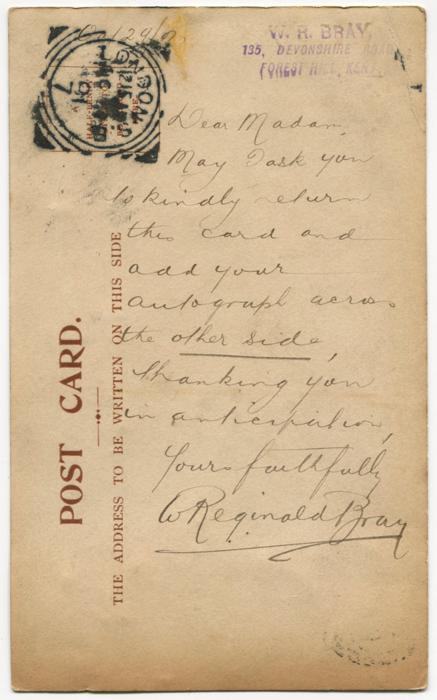 W. R. BRAY,
135, DEVONSHIRE ROAD
FOREST HILL, KENT.
LONDON
12.15
7
POST CARD.
THE ADDRESS TO BE WRITTEN ON THIS SIDE
Dear Madam,
May I ask you
to kindly return
this card and
add your
autograph across
the other side,
thanking you
in anticipation,
Yours faithfully
W Reginald Bray